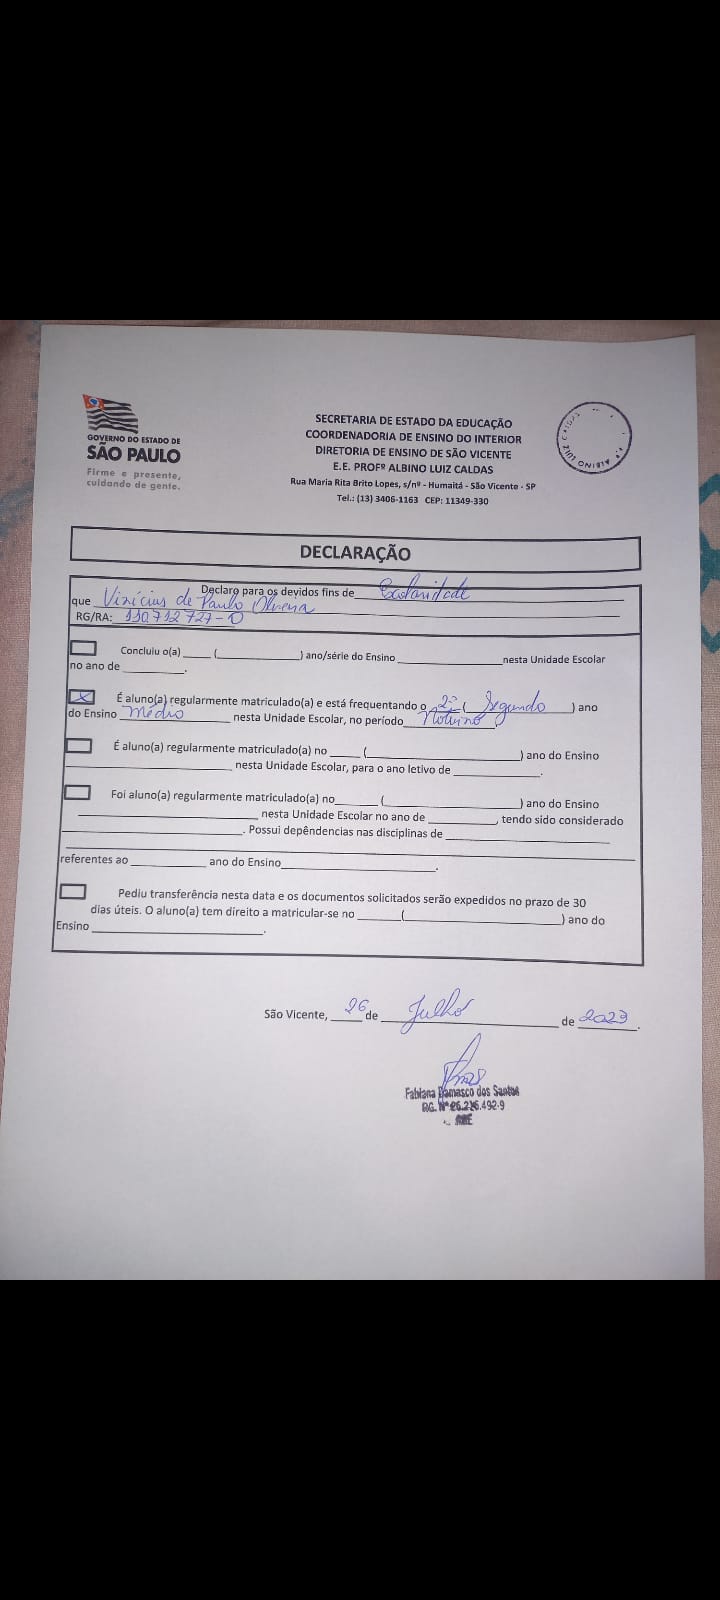 GOVERNO DO ESTADO DE
SÃO PAULO
Firme e presente,
cuidando de gente.
SECRETARIA DE ESTADO DA EDUCAÇÃO
COORDENADORIA DE ENSINO DO INTERIOR
DIRETORIA DE ENSINO DE SÃO VICENTE
E.E. PROFº ALBINO LUIZ CALDAS
Rua Maria Rita Brito Lopes, s/nº - Humaitá - São Vicente - SP
Tel.: (13) 3406-1163 CEP: 11349-330
ALBINO LUIZ CALDAS
DECLARAÇÃO
Declaro para os devidos fins de Escolaridade
que Vinicius de Paulo Oliveira
RG/RA: 110.712.727-0
Concluiu o(a) _____ (_______________) ano/série do Ensino ___________________nesta Unidade Escolar
no ano de ___________.
X É aluno(a) regularmente matriculado(a) e está frequentando o 2º (Segundo) ano
do Ensino Médio nesta Unidade Escolar, no período Noturno
É aluno(a) regularmente matriculado(a) no _____ (___________________________) ano do Ensino
___________________________ nesta Unidade Escolar, para o ano letivo de ______________.
Foi aluno(a) regularmente matriculado(a) no_______ (________________________) ano do Ensino
_____________________________ nesta Unidade Escolar no ano de ___________, tendo sido considerado
_____________________________. Possui depêndencias nas disciplinas de ___________________________
referentes ao ____________ ano do Ensino_________________________.
Pediu transferência nesta data e os documentos solicitados serão expedidos no prazo de 30
dias úteis. O aluno(a) tem direito a matricular-se no _______(__________________________) ano do
Ensino ____________________________.
São Vicente, 26 de Julho de 2023.
Fabiana Damasco dos Santos
RG. Nº 26.216.492-9